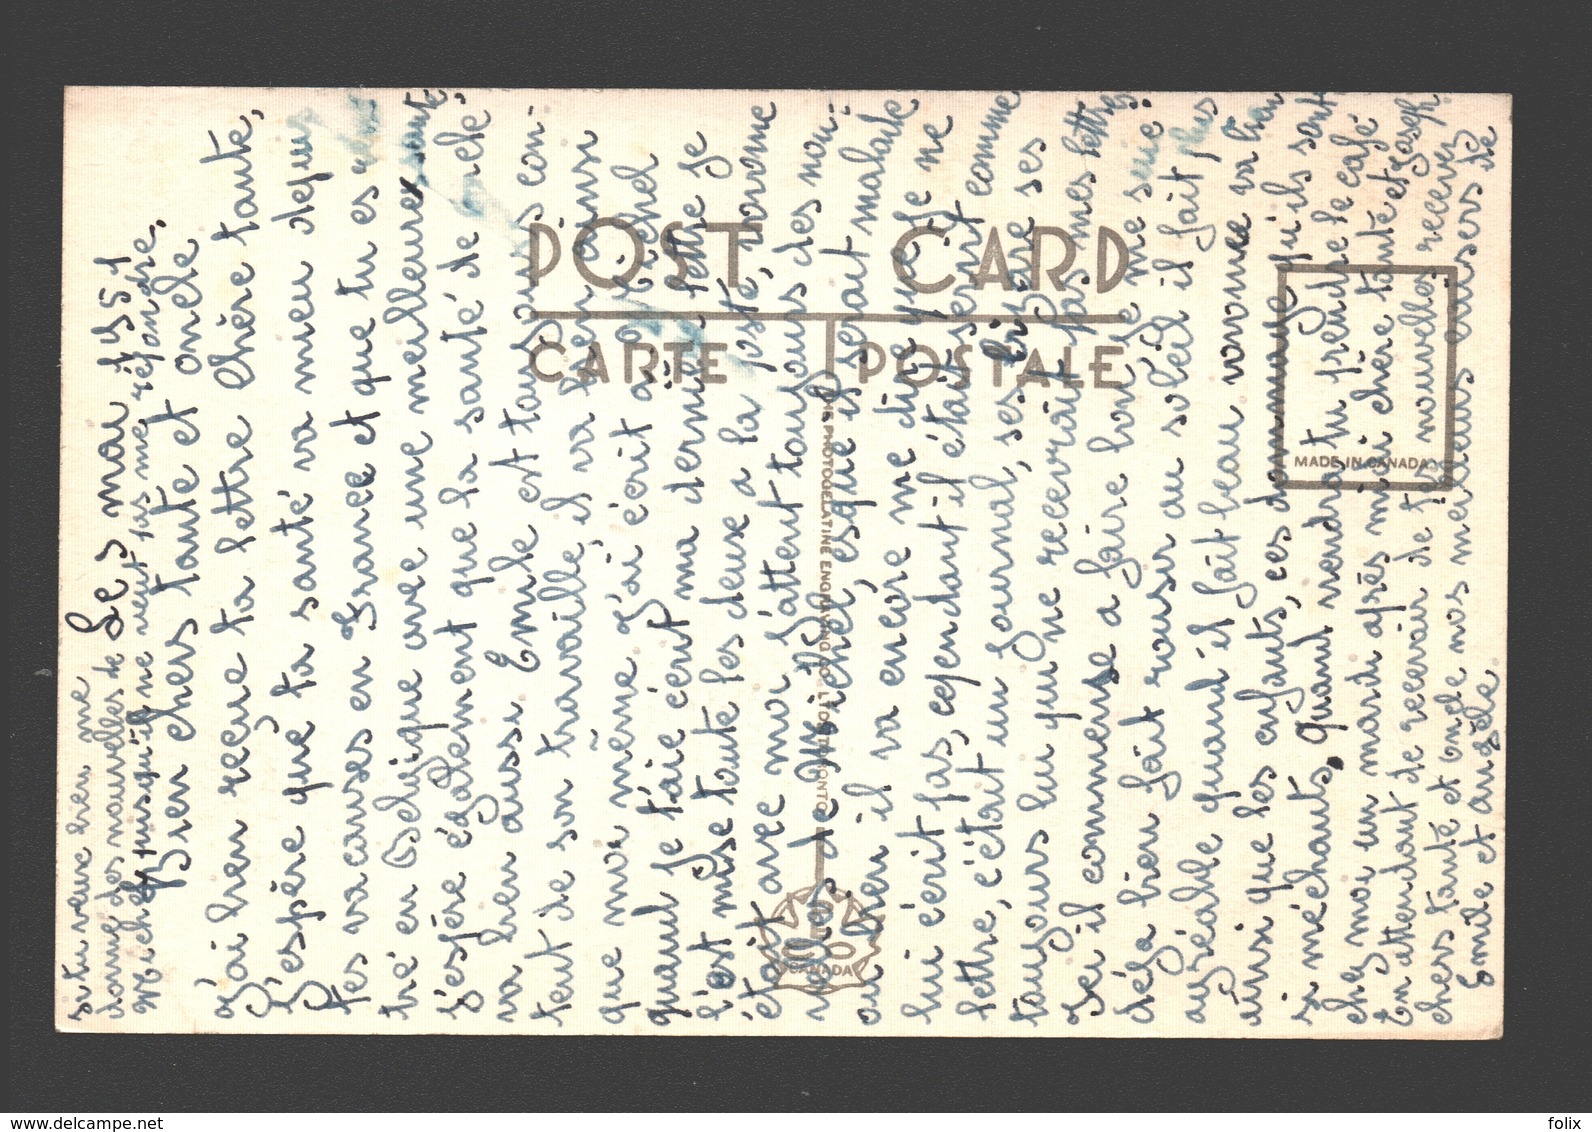 si tu veux bien me
donné des nouvelles de
Michel, puisqu'il ne veut pas me répondre.
Le 5 mai 1951
Bien chers tante et oncle
J'ai bien recue ta lettre chère tante,
J'espère que ta santé va mieu depuis
tes vacanses en France et que tu es
tré en Belgique avec une meilleure santé
J'espére également que la santé de oncle
va bien aussi. Emile est toujours con-
tent de son travaille, il va bien ainsi
que moi même. J'ai écrit a Michel
quand je t'aie écrit ma dernier lettre je
l'est mise toute les deux a la poste, voronne
étant avec moi. J'attent toujours des nou-
velles de Michel, esque il serait malade
ou bien il va encore me dire que je ne
lui écrit pas, cependant il était écrit comme
lettre, c'était un Journal, ses bizare ses
toujours lui qui ne recevrait pas mes lettres
Ici il commense a faire bon, je me suis
déja bien fait rousir au soleil il fait plus
agréable quand il fait beau voronne va bien
ainsi que les enfants, ces dommage qu'ils sont
si méchants, quand vendra tu prendre le café
chez moi un mardi après midi chère tante et Joseph
En attendant de recevoir de tes nouvelles recever
chers tante et oncle nos meilleurs baisers de
Emile et angèle
POST CARD
CARTE POSTALE
THE PHOTOGELATINE ENGRAVING CO. LTD. TORONTO
MADE IN CANADA
CANADA
www.delcampe.net
folix